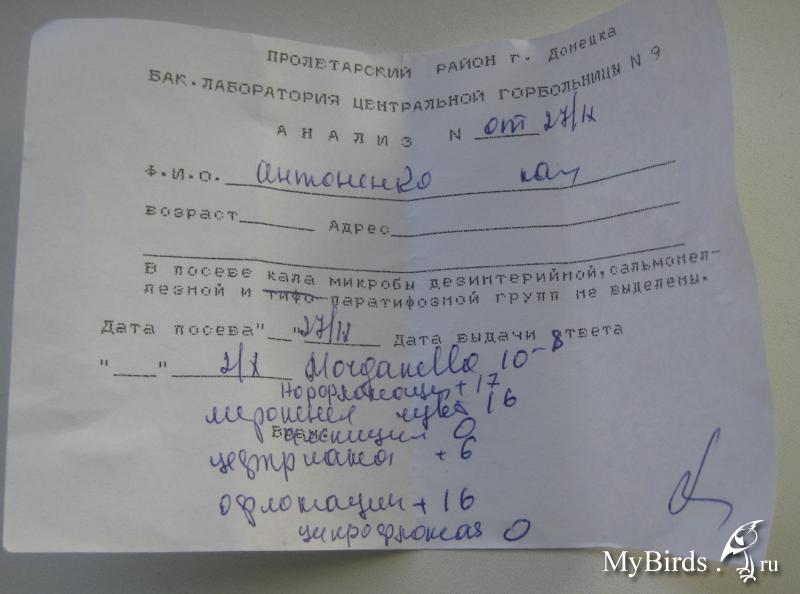 ПРОЛЕТАРСКИЙ РАЙОН г. Донецка
БАК.ЛАБОРАТОРИЯ ЦЕНТРАЛЬНОЙ ГОРБОЛЬНИЦЫ N 9
АНАЛИЗ N от 27/IX
Ф.И.О. Антоненко
возраст Адрес
В посеве кала микробы дезинтерийной, сальмонел-
лезной и тифо-паратифозной групп не выделены.
Дата посева "__" 27/IX Дата выдачи ответа
"____" 2/X Morganella 10-8
Норфлоксацин + 17
меропенем чув 16
Врач 0
цефтриаксон + 6
офлоксацин + 16
0
MyBirds.ru